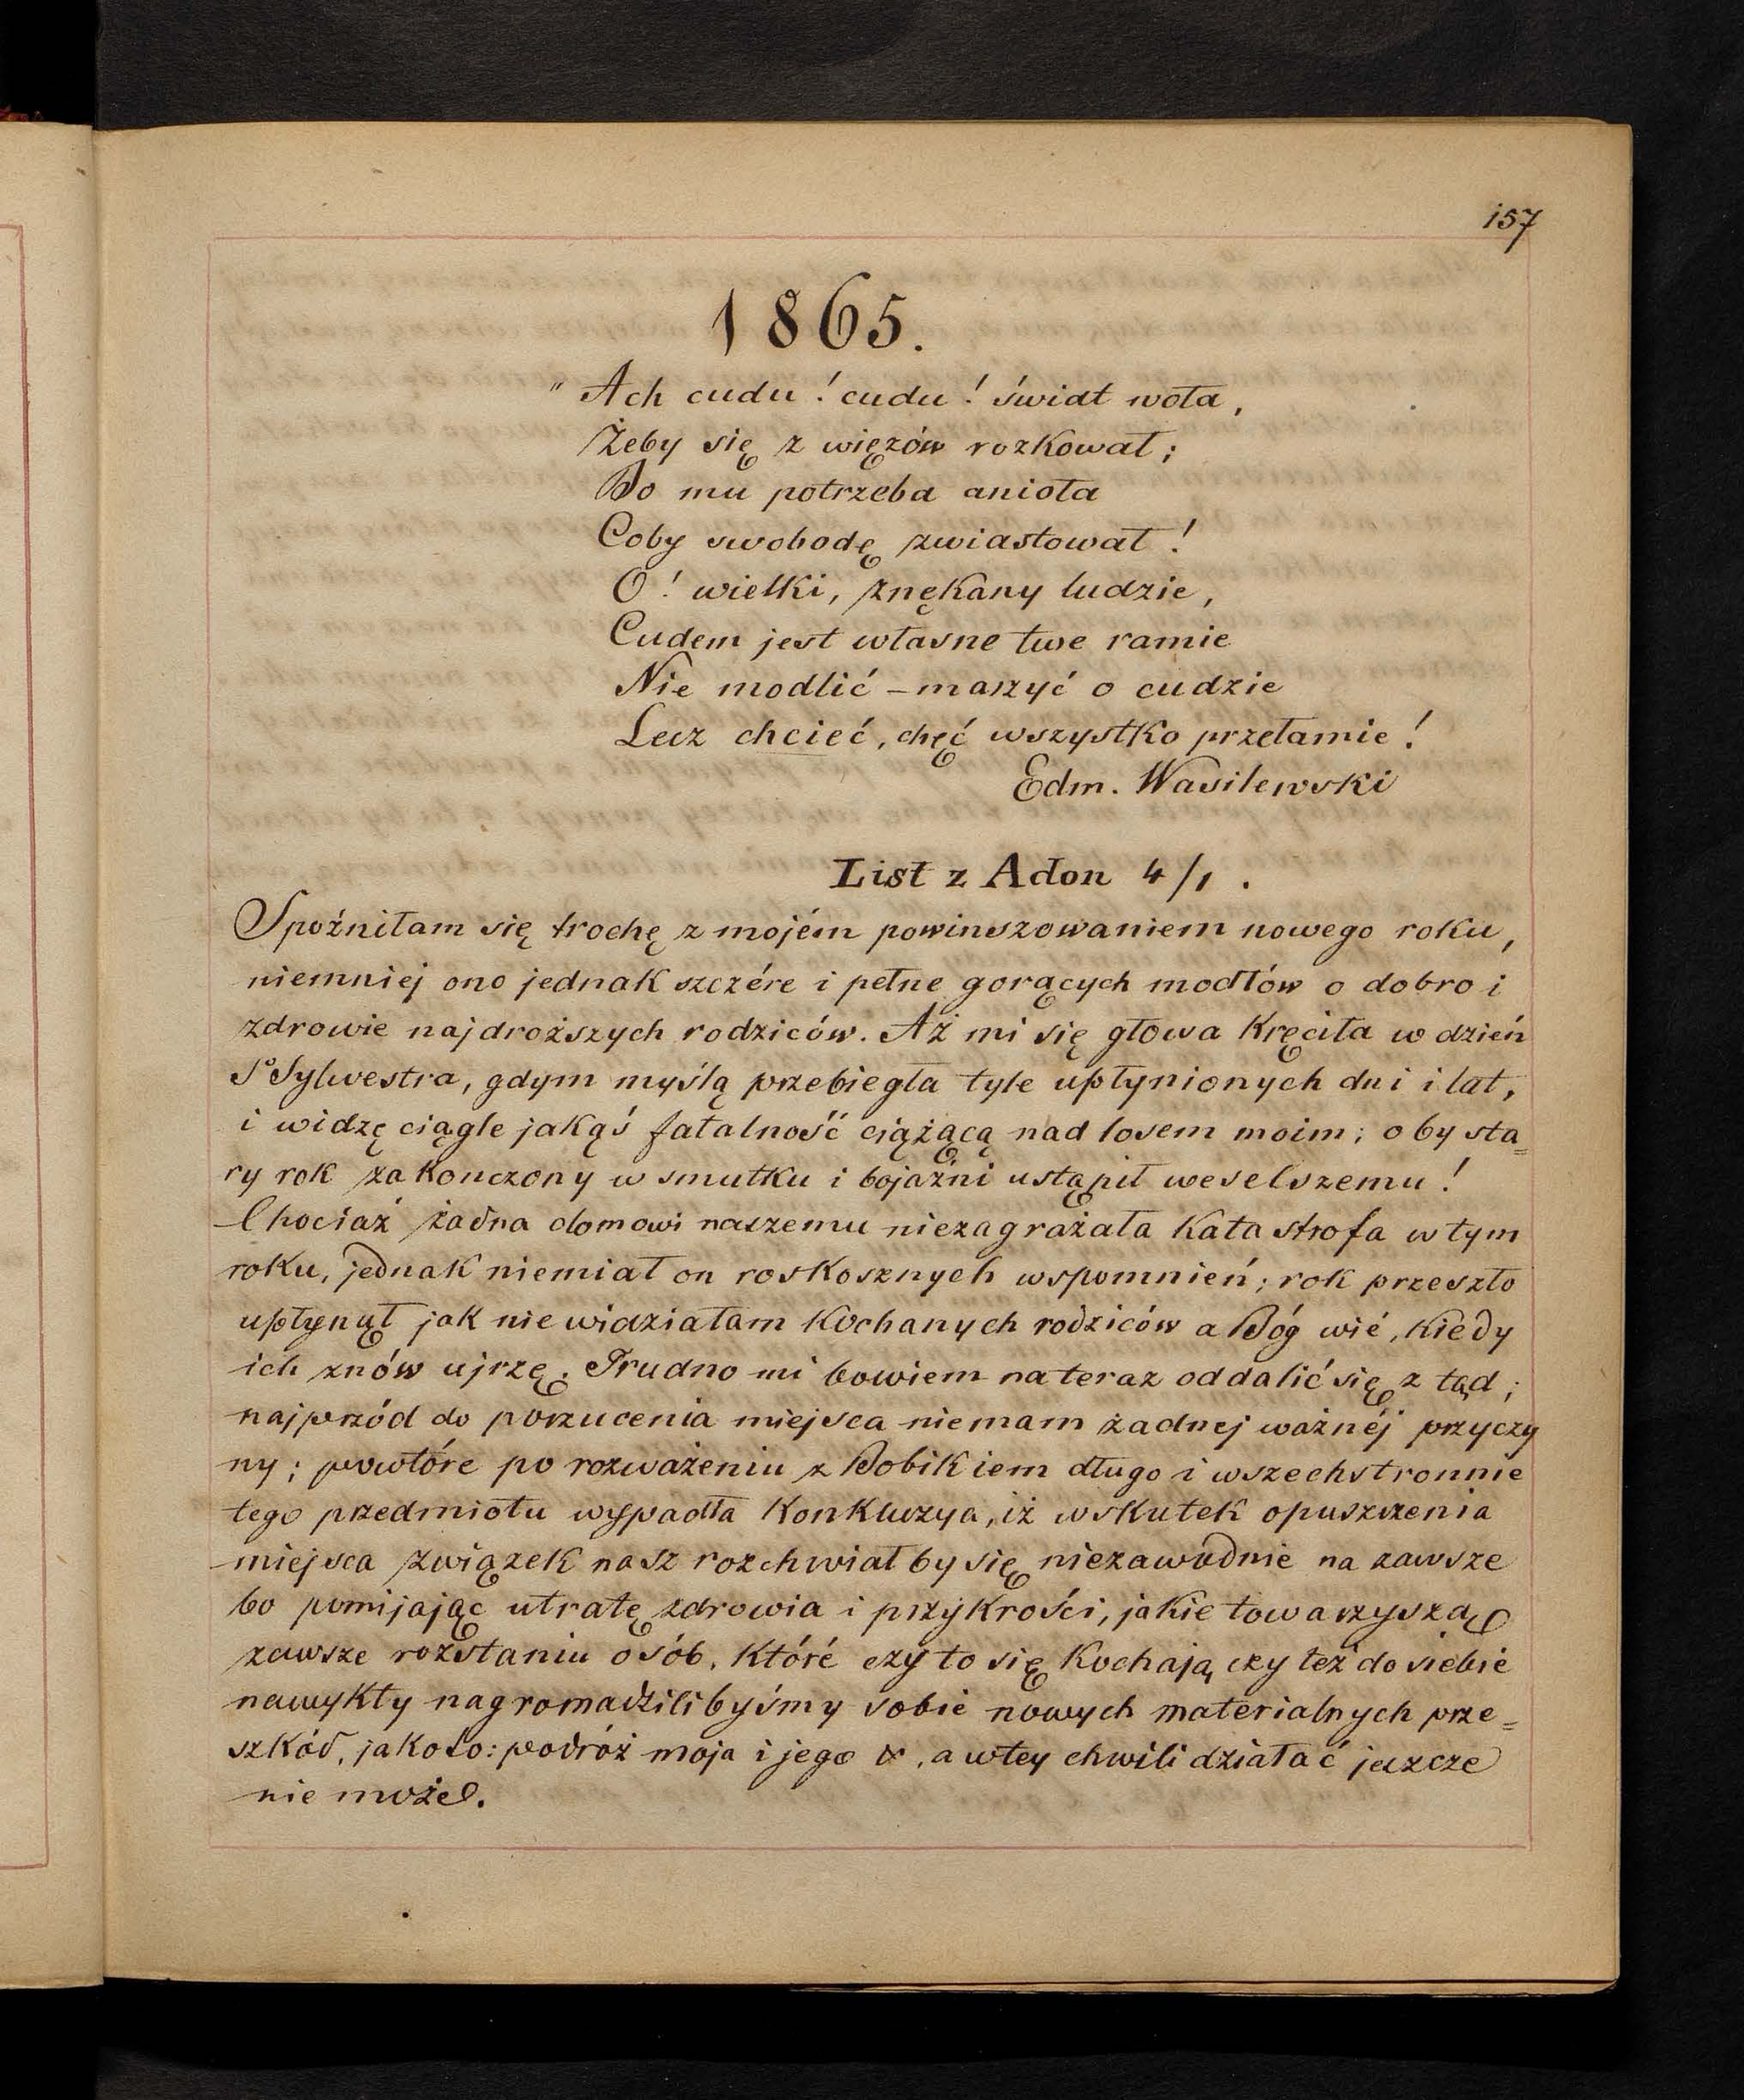 157
1865.
" Ach cudu! cudu! świat woła,
Żeby się z więzów rozkował;
Bo mu potrzeba anioła
Coby swobodę zwiastował!
O! wielki, znękany ludzie,
Cudem jest własne twe ramie
Nie modlić – marzyć o cudzie
Lecz chcieć, chęć wszystko przełamie!
Edm. Wasilewski
List z Adon 4/1.
Spóźniłam się trochę z mojém powinszowaniem nowego roku,
niemniej ono jednak szczére i pełne gorących modłów o dobro i
zdrowie najdroższych rodziców. Aż mi się głowa kręciła w dzień
So Sylwestra, gdym myślą przebiegła tyle upłynionych dni i lat,
i widzę ciągle jakąś fatalność ciążącą nad losem moim; oby sta=
ry rok zakonczony w smutku i bojaźni ustąpił weselszemu!
Chociaż żadna domowi naszemu niezagrażała katastrofa w tym
roku, jednak niemiał on roskosznych wspomnień; rok przeszło
upłynął jak niewidziałam kochanych rodziców a Bóg wié, kiedy
ich znów ujrzę. Trudno mi bowiem na teraz oddalić się z tąd;
najprzód do porzucenia miejsca niemam żadnej ważnéj przyczy
ny; powtóre po rozważeniu z Bobikiem długo i wszechstronnie
tego przedmiotu wypadła konkluzya, iż wskutek opuszczenia
miejsca związek nasz rozchwiał by się niezawodnie na zawsze
bo pomijając utratę zdrowia i przykrości, jakie towarzyszą
zawsze rozstaniu osób, które czy to się kochają czy też do siebie
nawykły nagromadzilibyśmy sobie nowych materialnych prze=
szkód, jakoto: podróż moja i jego &, a w tey chwili działać jeszcze
nie może.